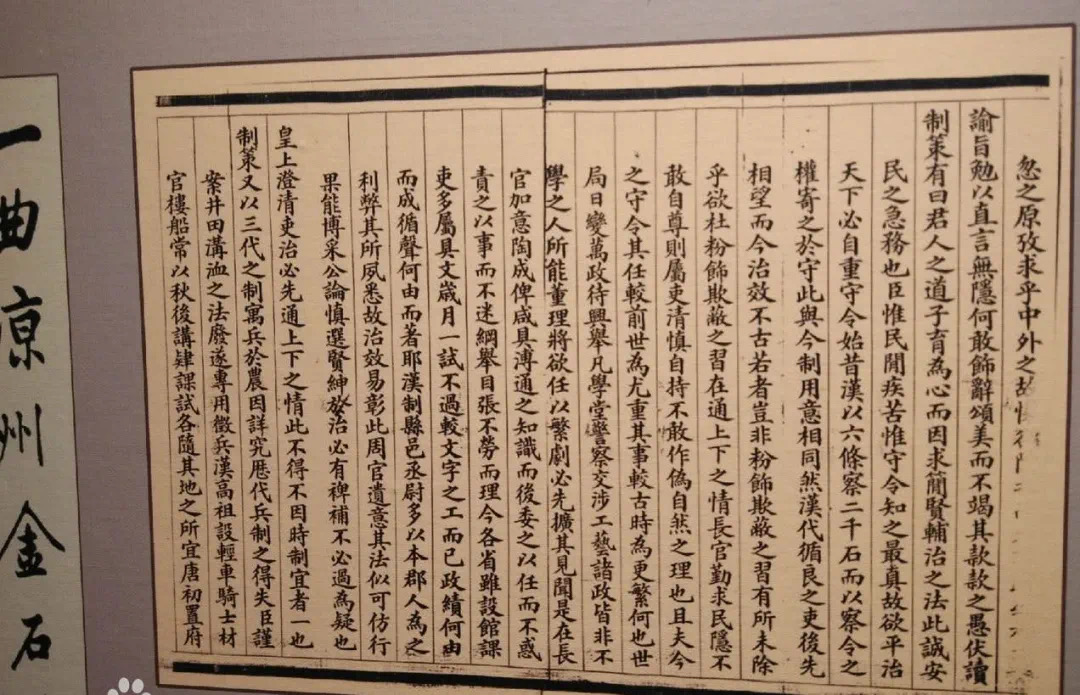 忽之原攷求乎中外之故
諭旨勉以直言無隱何敢飾辭頌美而不竭其款款之愚伏讀
制策有曰君人之道子育為心而因求簡賢輔治之法此誠安
民之急務也臣惟民間疾苦惟守令知之最真故欲平治
天下必自重守令始昔漢以六條察二千石而以察令之
權寄之於守此與今制用意相同然漢代循良之吏後先
相望而今治效不古若者豈非粉飾欺蔽之習有所未除
乎欲杜粉飾欺蔽之習在通上下之情長官勤求民隱不
敢自尊則屬吏清慎自持不敢作偽自然之理也且夫今
之守令其任較前世為尤重其事較古時為更繁何也世
局日變萬政待興舉凡學堂警察交涉工藝諸政皆非不
學之人所能董理將欲任以繁劇必先擴其見聞是在長
官加意陶成俾咸具溥通之知識而後委之以任而不惑
責之以事而不迷綱舉目張不勞而理今各省雖設館課
吏多屬具文歲月一試不過較文字之工而已政績何由
而成循聲何由而著耶漢制縣邑丞尉多以本郡人為之
利弊其所夙悉故治效易彰此周官遺意其法似可仿行
果能博采公論慎選賢紳於治必有裨補不必過為疑也
皇上澄清吏治必先通上下之情此不得不因時制宜者一也
制策又以三代之制寓兵於農因詳究歷代兵制之得失臣謹
案井田溝洫之法廢遂專用徵兵漢高祖設輕車騎士材
官樓船常以秋後講肄課試各隨其地之所宜唐初置府
一曲京州金石